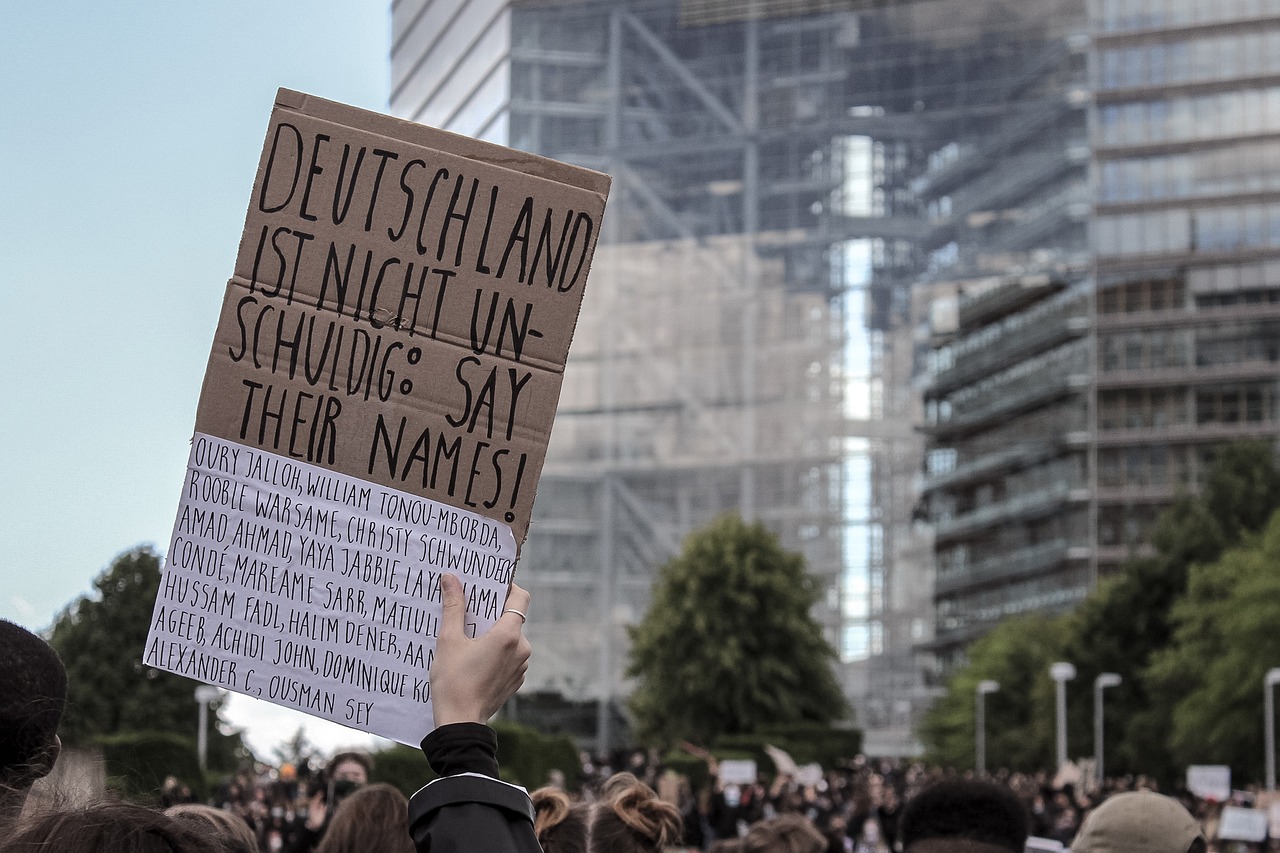 DEUTSCHLAND
IST NICHT UN-
SCHULDIG: SAY
THEIR NAMES!
OURY JALLOH, WILLIAM TONOU-MBOBDA,
ROOBLE WARSAME, CHRISTY SCHWUNDECK
AMAD AHMAD, YAYA JABBIE, LAYA
CONDÉ, MAREAME SARR, MATIUL
HUSSAM FADL, HALIM DENER, AAM
AGEEB, ACHIDI JOHN, DOMINIQUE KO
ALEXANDER C., OUSMAN SEY